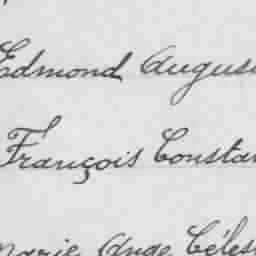 Edmond Augus
François Constan
Marie Ange Céles